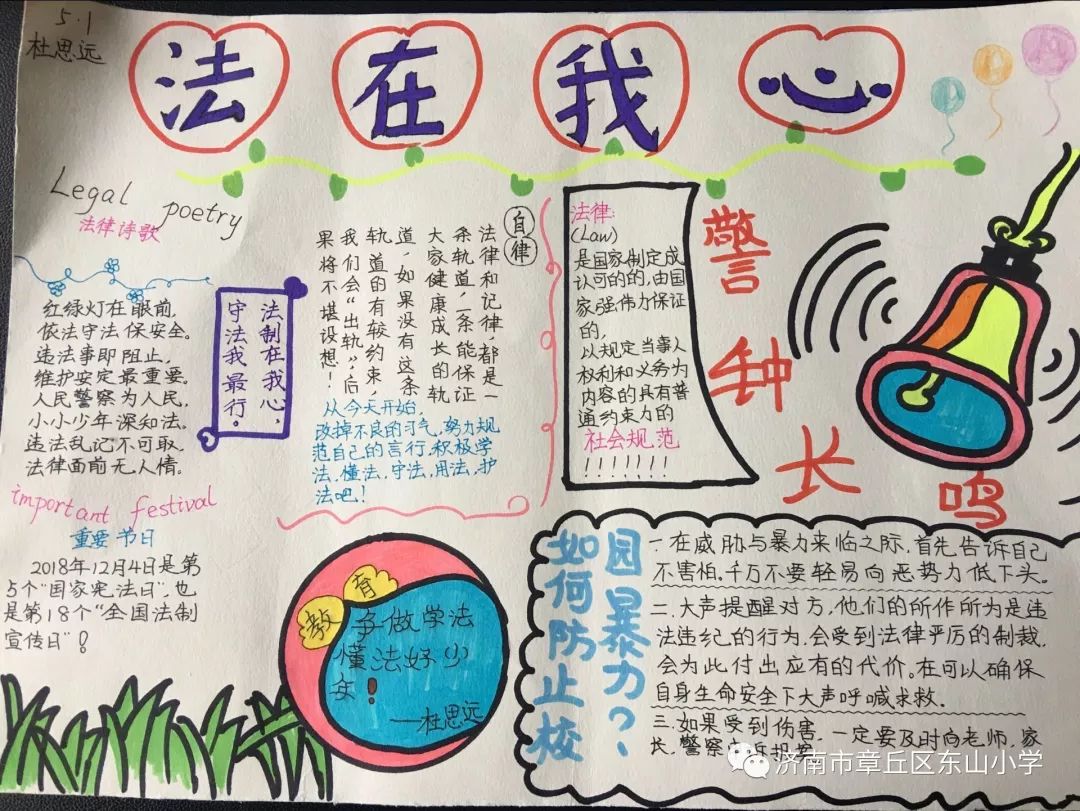 5.1
杜思远
法在我心
Legal poetry
法律诗歌
红绿灯在眼前,
依法守法保安全。
违法事即阻止,
维护安定最重要。
人民警察为人民,
小小少年深知法。
违法乱记不可取,
法律面前无人情。
法制在我心,
守法我最行。
自律
法律和记律,都是一
条轨道,一条能保证
大家健康成长的轨
道,如果没有这条
轨道的有较约束,
我们会“出轨”,后
果将不堪设想!
从今天开始,
改掉不良的习气,努力规
范自己的言行,积极学
法,懂法,守法,用法,护
法吧!
法律:
(Law)
是国家制定成
认可的的,由国
家强伟力保证
的,
以规定当事人
权利和义务为
内容的具有普
通约束力的
社会规范
!!!!!!!
警钟长鸣
important festival
重要节日
2018年12月4日是第
5个“国家宪法日”,也
是第18个“全国法制
宣传日”!
教育
争做学法
懂法好少
年!
——杜思远
如何防止校
园暴力?、
一.在威胁与暴力来临之际,首先告诉自己
不害怕,千万不要轻易向恶势力低下头。
二.大声提醒对方,他们的所作所为是违
法违纪的行为,会受到法律严厉的制裁,
会为此付出应有的代价。在可以确保
自身生命安全下大声呼喊求救。
三.如果受到伤害,一定要及时向老师,家
长,警察
济南市章丘区东山小学